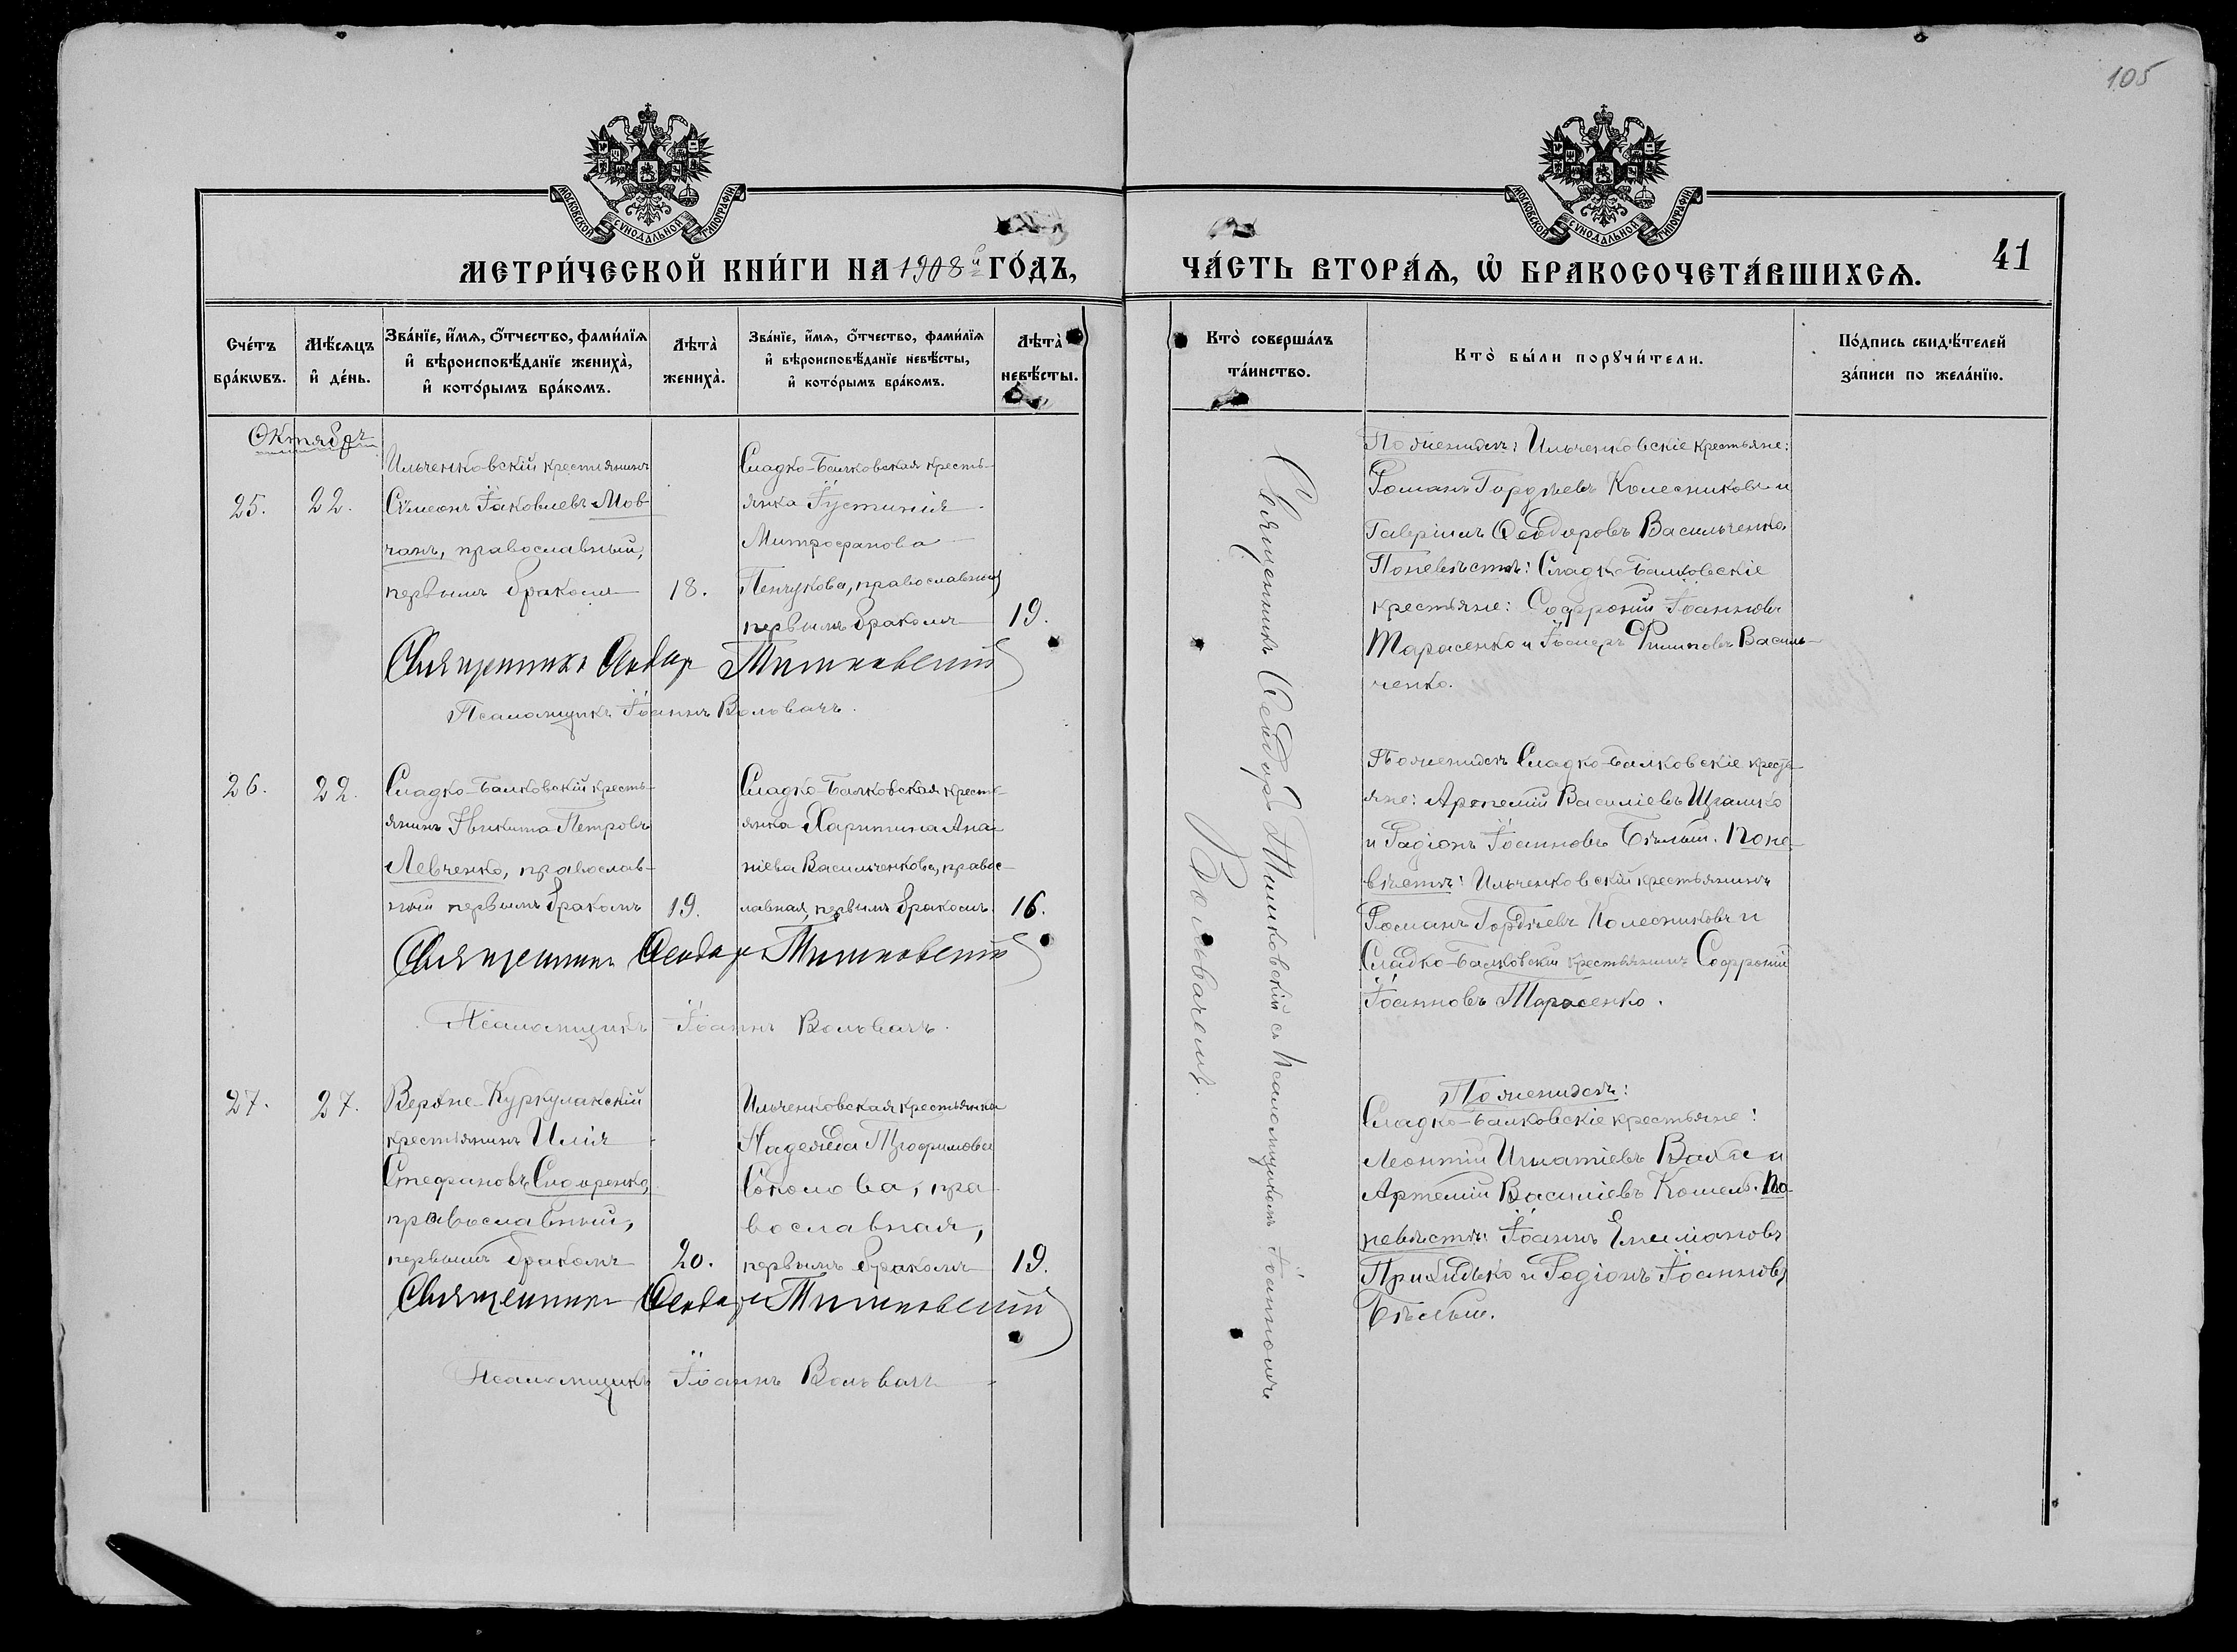 105
МОСКОВСКОЙ СѴНОДАЛЬНОЙ ТИПОГРАФІИ
МЕТРИ́ЧЕСКОЙ КНИ́ГИ НА 1908й ГО́ДЪ,
Сче́тъ бра́кѡвъ.
Мѣ́сяцъ и҆ де́нь.
Зва́нїе, и҆́мѧ, ѻ҆́тчество, фами́лїѧ
и҆ вѣроисповѣ́данїе жениха̀,
и҆ кото́рымъ бра́комъ.
Лѣта̀ жениха̀.
Зва́нїе, и҆́мѧ, ѻ҆́тчество, фами́лїѧ
и҆ вѣроисповѣ́данїе невѣ́сты,
и҆ кото́рымъ бра́комъ.
Лѣта̀ невѣ́сты.
Октябрь
25.
22.
Ильченковскій крестьянинъ
Сѵмеонъ Іаковлевъ Мов-
чанъ, православный,
первымъ бракомъ
18.
Сладко-Балковская кресть-
янка Іустинія
Митрофанова
Пенчукова, православная
первымъ бракомъ
19.
Священникъ Ѳеодоръ
Псаломщикъ Іоаннъ Воловачъ.
26.
22.
Сладко-Балковскій кресть-
янинъ Никита Петровъ
Левченко, православ-
ный первымъ бракомъ
19.
Сладко-Балковская кресть-
янка Харитина Ана-
ніева Васильченкова, правос-
лавная, первымъ бракомъ.
16.
Священникъ Ѳеодоръ
Псаломщикъ Іоаннъ Воловачъ.
27.
27.
Верхне-Куркулакскій
крестьянинъ Илія
Стефановъ Сидоренко,
православный,
первымъ бракомъ
20.
Ильченковская крестьянка
Надежда Трофимова
Соколова, пра-
вославная,
первымъ бракомъ
19.
Священникъ Ѳеодоръ
Псаломщикъ Іоаннъ Воловачъ
МОСКОВСКОЙ СѴНОДАЛЬНОЙ ТИПОГРАФІИ
ЧА́СТЬ ВТОРА́Ѧ, Ѡ҆ БРАКОСОЧЕТА́ВШИХСѦ.
41
Кто̀ соверша́лъ та́инство.
Кто̀ бы́ли порꙋчи́тели.
По́дпись свидѣ́телей
за́писи по жела́нїю.
Священникъ Ѳеодоръ съ Псаломщикомъ Іоанномъ
Воловачемъ.
По женихѣ: Ильченковскіе крестьяне:
Романъ Гордѣевъ Колесниковъ и
Гавріилъ Ѳеодоровъ Васильченко.
По невѣстѣ: Сладко-Балковскіе
крестьяне: Софроній Іоанновъ
Тарасенко и Филиповъ Василь-
ченко.
По женихѣ Сладко-Балковскіе кресть-
яне: Артемій Василіевъ
и Родіонъ Іоанновъ Бѣлый. По не-
вѣстѣ: Ильченковскій крестьянинъ
Романъ Гордѣевъ Колесниковъ и
Сладко-Балковскій крестьянинъ Софроній
Іоанновъ Тарасенко.
По женихѣ:
Сладко-Балковскіе крестьяне:
Леонтій Игнатіевъ и
Артемій Василіевъ Кошель. По
невѣстѣ: Іоаннъ
Приходько и Родіонъ Іоанновъ
Бѣлый.